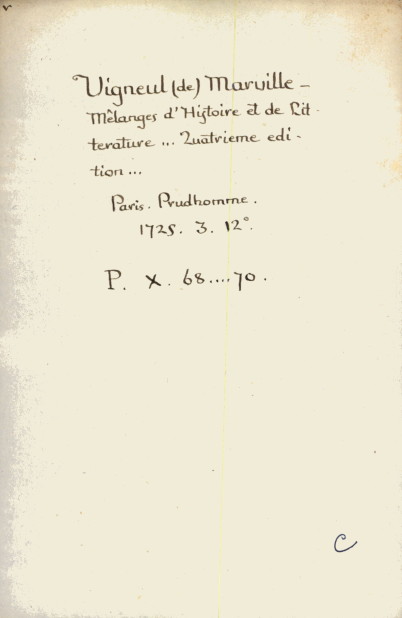 v
Vigneul (de) Marville –
Mêlanges d'Histoire et de Lit-
terature ... Quatrieme edi-
tion ...
Paris. Prudhomme.
1725. 3. 12°.
P. X. 68....70.
C